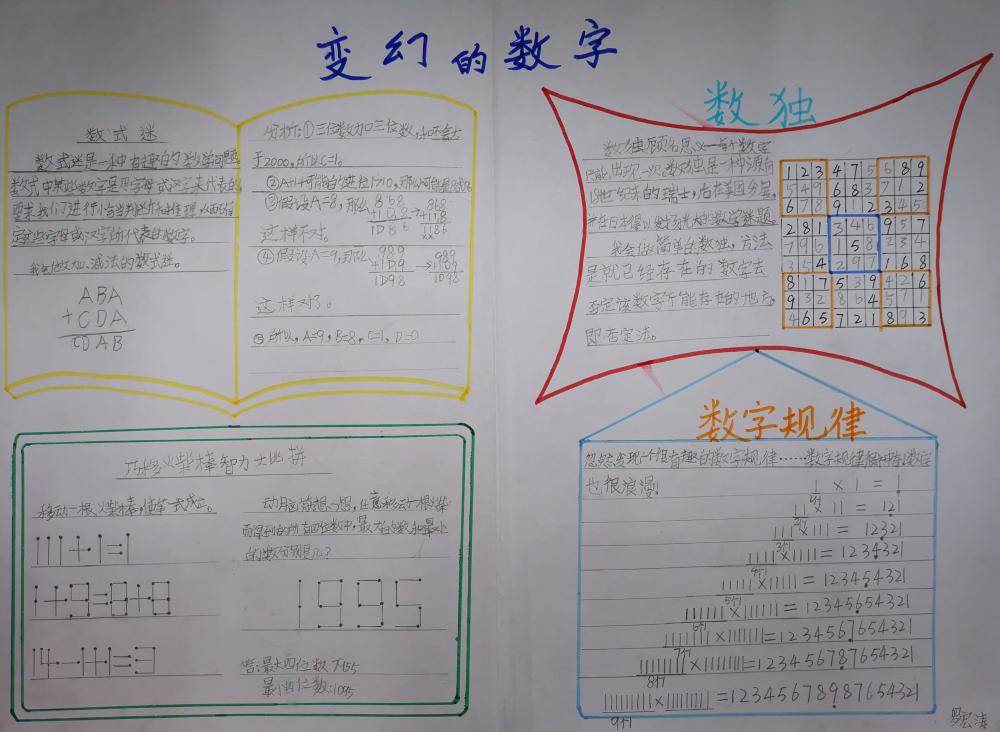 变幻的数字
数式迷
数式迷是一种有趣的数学问题。
数式中某些数字是用字母或汉字来代表的,
要求我们进行恰当判断和推理,从而确
定这些字母或汉字所代表的数字。
我会做加、减法的数式迷。
ABA
+CDA
CDAB
分析:①三位数加三位数,和不会大
于2000,所以C=1。
②A+1可能的进位1>0,那么A可能是8或9
③假设A=8,那么
868
+1D8
1D86
868
+118
1186
××
这样不对。
④假设A=9,那么
989
+1D9
1D98
989
+109
1098
这样对了。
⑤所以,A=9,B=8,C=1,D=0
数独
数独顾名思义——每个数字
只能出现一次。数独是一种源自
18世纪末的瑞士,后在美国发展,
并在日本得以发扬光大的数学谜题。
我会做简单的数独,方法
是就已经存在的数字去
否定该数字不能存在的地方,
即否定法。
1 2 3 4 7 5 6 8 9
5 4 9 6 8 3 7 1 2
6 7 8 9 1 2 3 4 5
2 8 1 3 4 6 9 5 7
7 9 6 1 5 8 2 3 4
3 5 4 2 9 7 1 6 8
8 1 7 5 3 9 4 2 6
9 3 2 8 6 4 5 7 1
4 6 5 7 2 1 8 9 3
巧移火柴棒智力大比拼
移动一根火柴棒,使等式成立。
111+1=1
1+9=8+8
14-1+1=9
动脑筋想一想,任意移动一根火柴
而得到的所有四位数中,最大的数和最小
的数分别是几?
1995
答:最大四位数:7155
最小四位数:1095
数字规律
忽然发现一个很有趣的数字规律……数字规律
也很浪漫!
1 × 1 = 1
1个1
11 × 11 = 121
2个1
111 × 111 = 12321
3个1
1111 × 1111 = 1234321
4个1
11111 × 11111 = 123454321
5个1
111111 × 111111 = 12345654321
6个1
1111111 × 1111111 = 1234567654321
7个1
11111111 × 11111111 = 123456787654321
8个1
111111111 × 111111111 = 12345678987654321
9个1